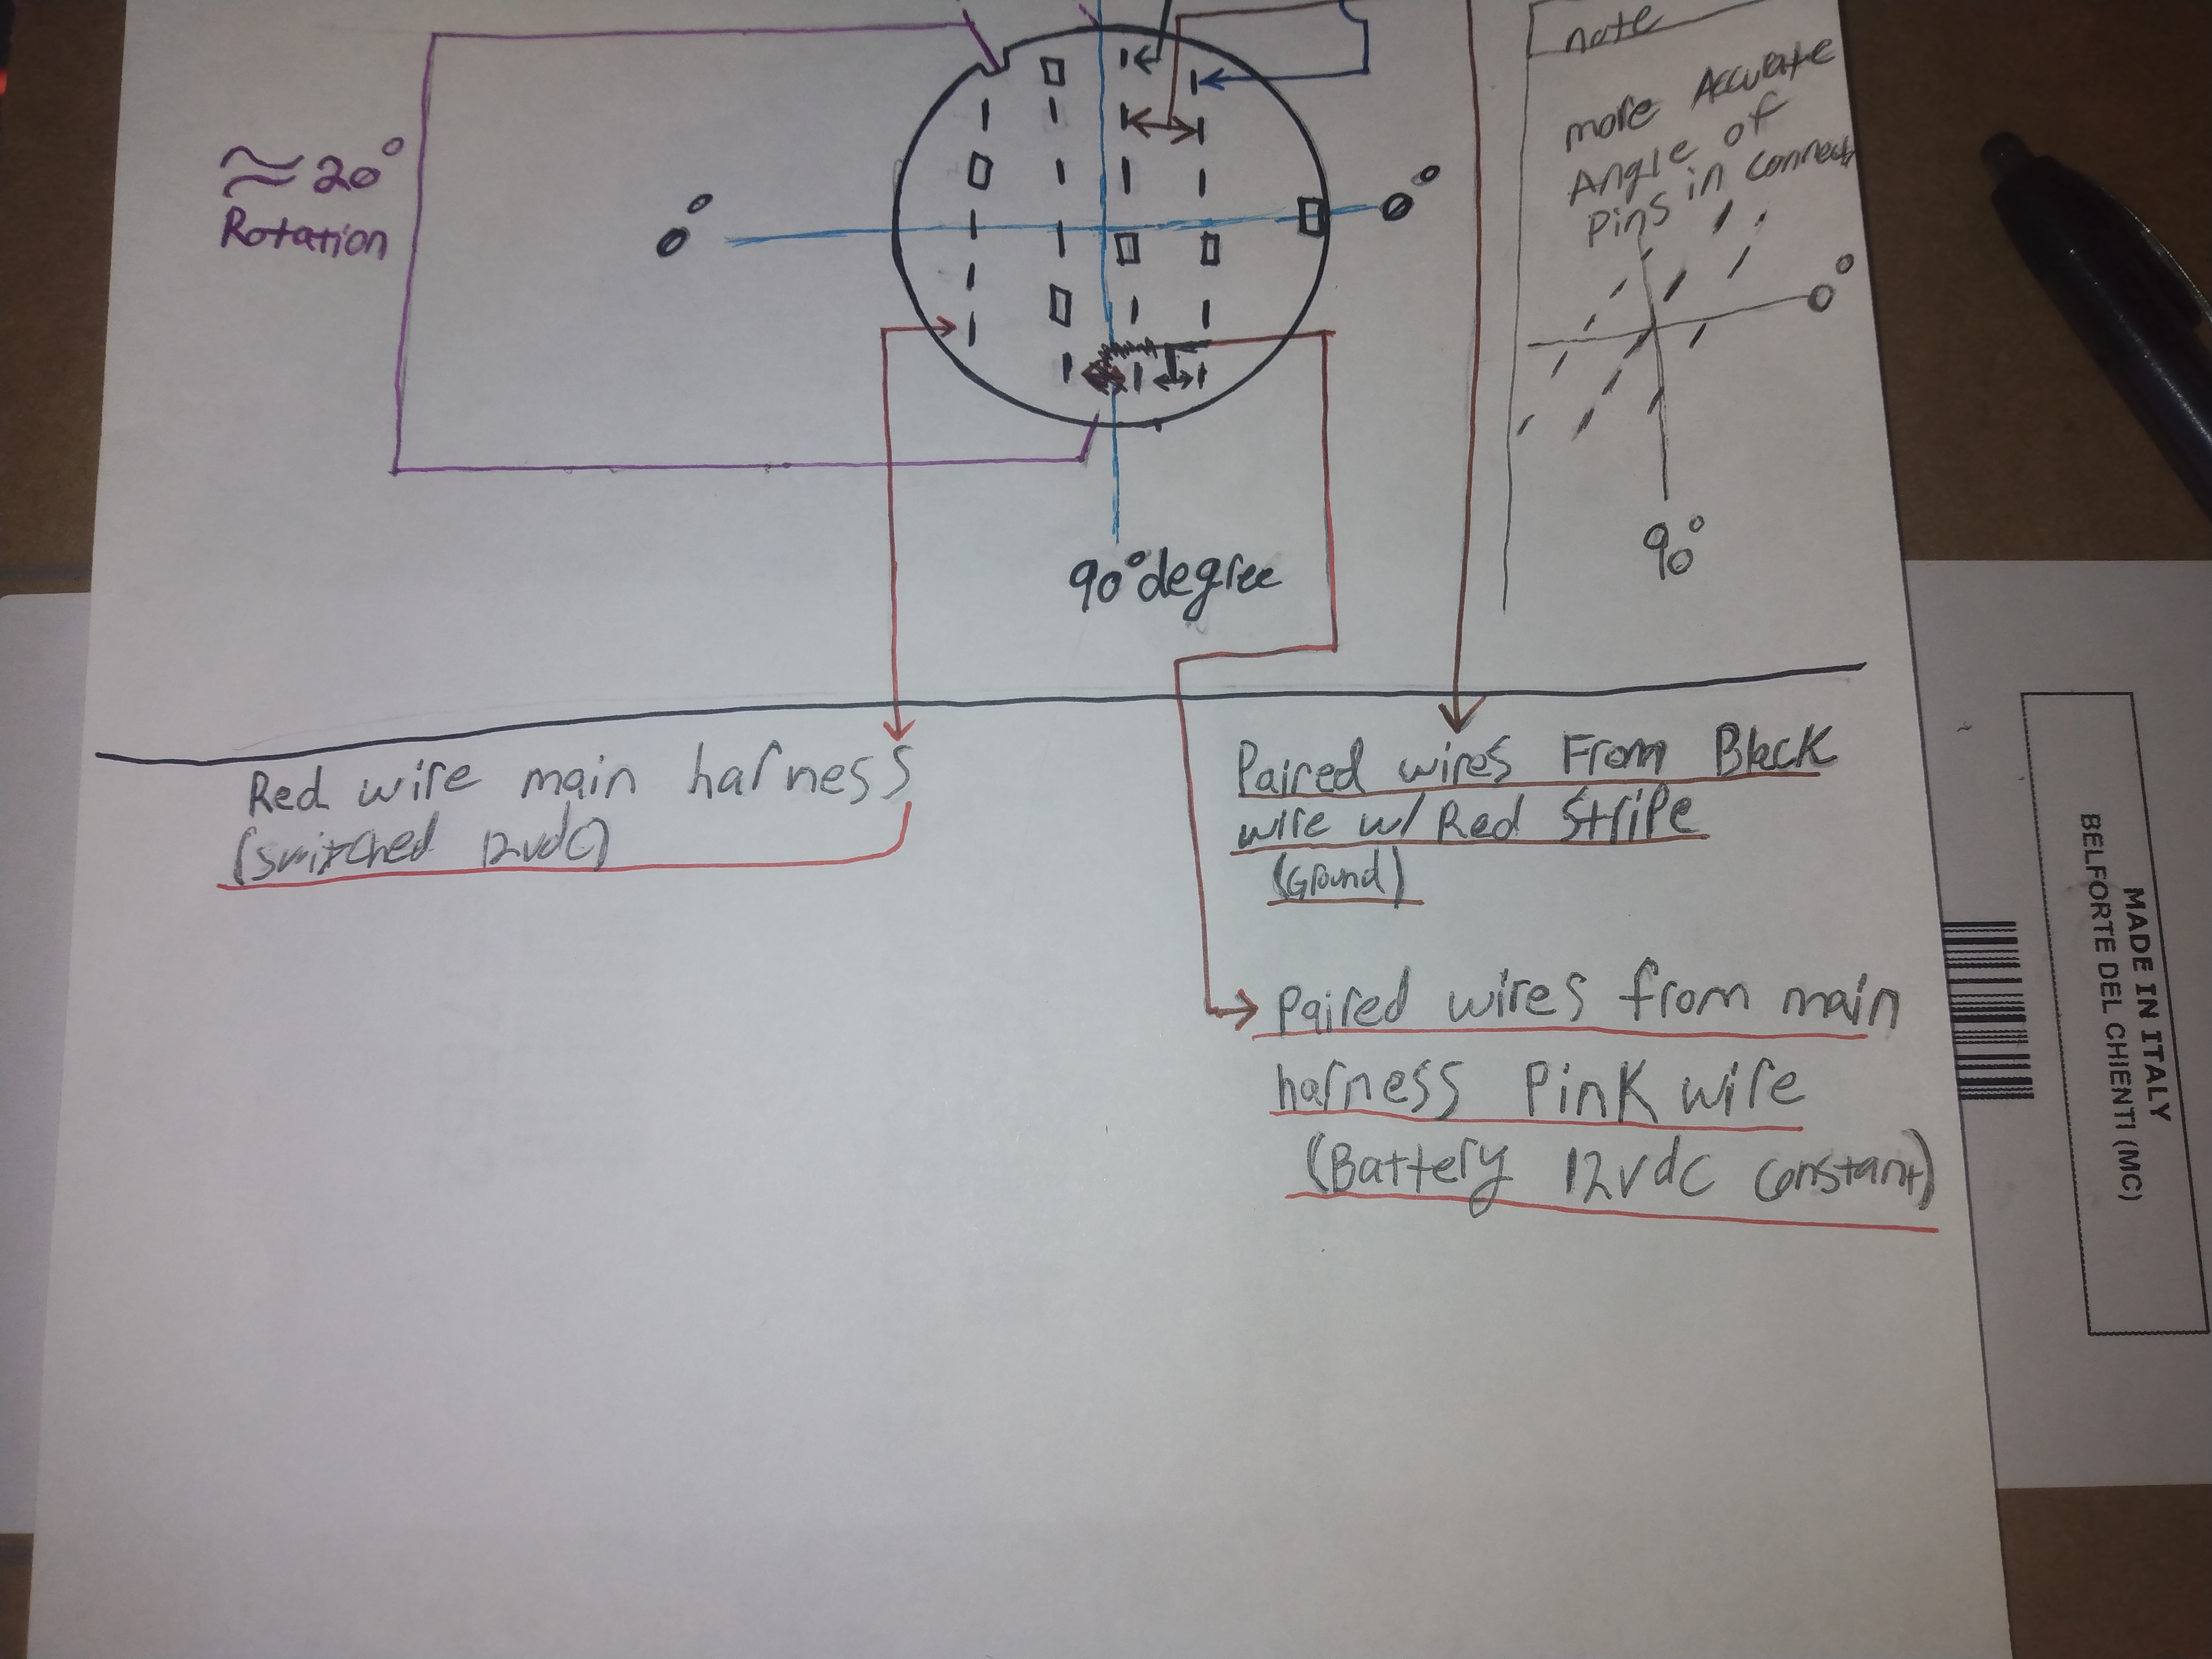 note
more Accurate
Angle of
Pins in connect
0°
90°
≈ 20°
Rotation
0°
0°
90° degree
Red wire main harness
(switched 12vdc)
Paired wires From Black
wire w/ Red Stripe
(Ground)
Paired wires from main
harness Pink wire
(Battery 12vdc constant)
MADE IN ITALY
BELFORTE DEL CHIENTI (MC)